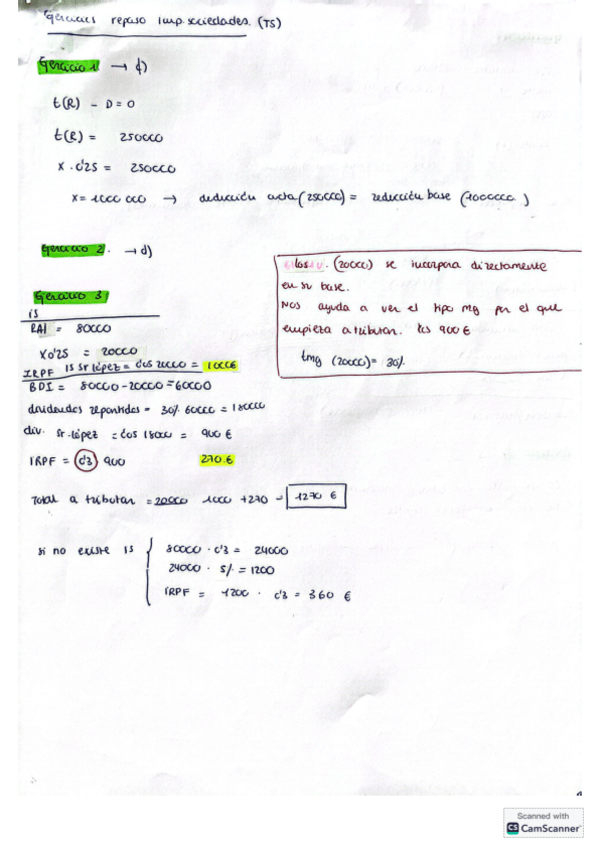 Ejercicios repaso Imp. sociedades. (TS)
Ejercicio 1 → d)
t(R) - D = 0
t(R) = 250000
X · 0'25 = 250000
X = 1000 000 → deducción cuota (250000) = reducción base (1000000)
Ejercicio 2. → d)
los. (20000) se incorpora directamente
en su base.
Nos ayuda a ver el tipo mg por el que
empieza a tributar. los 900 €
tmg (20000) = 30%
Ejercicio 3
IS
RAI = 80000
X0'25 = 20000
IRPF IS Sr López = 0'05 20000 = 1000€
BDI = 80000 - 20000 = 60000
dividendos repartidos = 30% 60000 = 18000
div. Sr. López = 0'05 18000 = 900 €
IRPF = 0'3 900 270 €
Total a tributar = 1000 + 270 = 1270 €
si no existe IS
80000 · 0'3 = 24000
24000 · 5% = 1200
IRPF = 1200 · 0'3 = 360 €
Scanned with
CS CamScanner